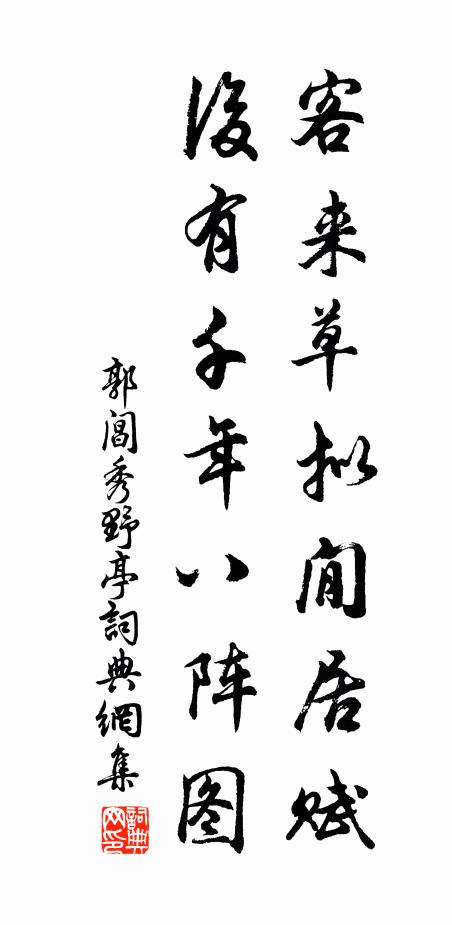 客来草拟闲居赋
后有千年八阵图
郭阊秀野亭詞典網集
詞典网印